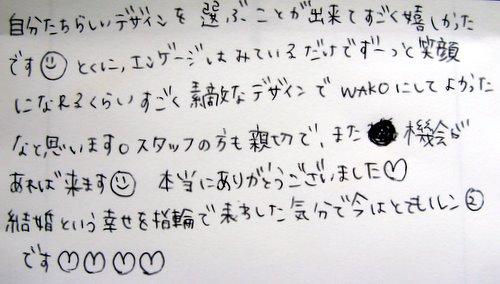 自分たちらしいデザインを選ぶことが出来てすごく嬉しかった
です☺ とくに、エンゲージはみているだけでずーっと笑顔
になれるくらいすごく素敵なデザインで WAKOにしてよかった
なと思います。スタッフの方も親切で、また機会が
あれば来ます☺ 本当にありがとうございました♡
結婚という幸せを指輪で表した気分で今はとてもルン②
です♡♡♡♡